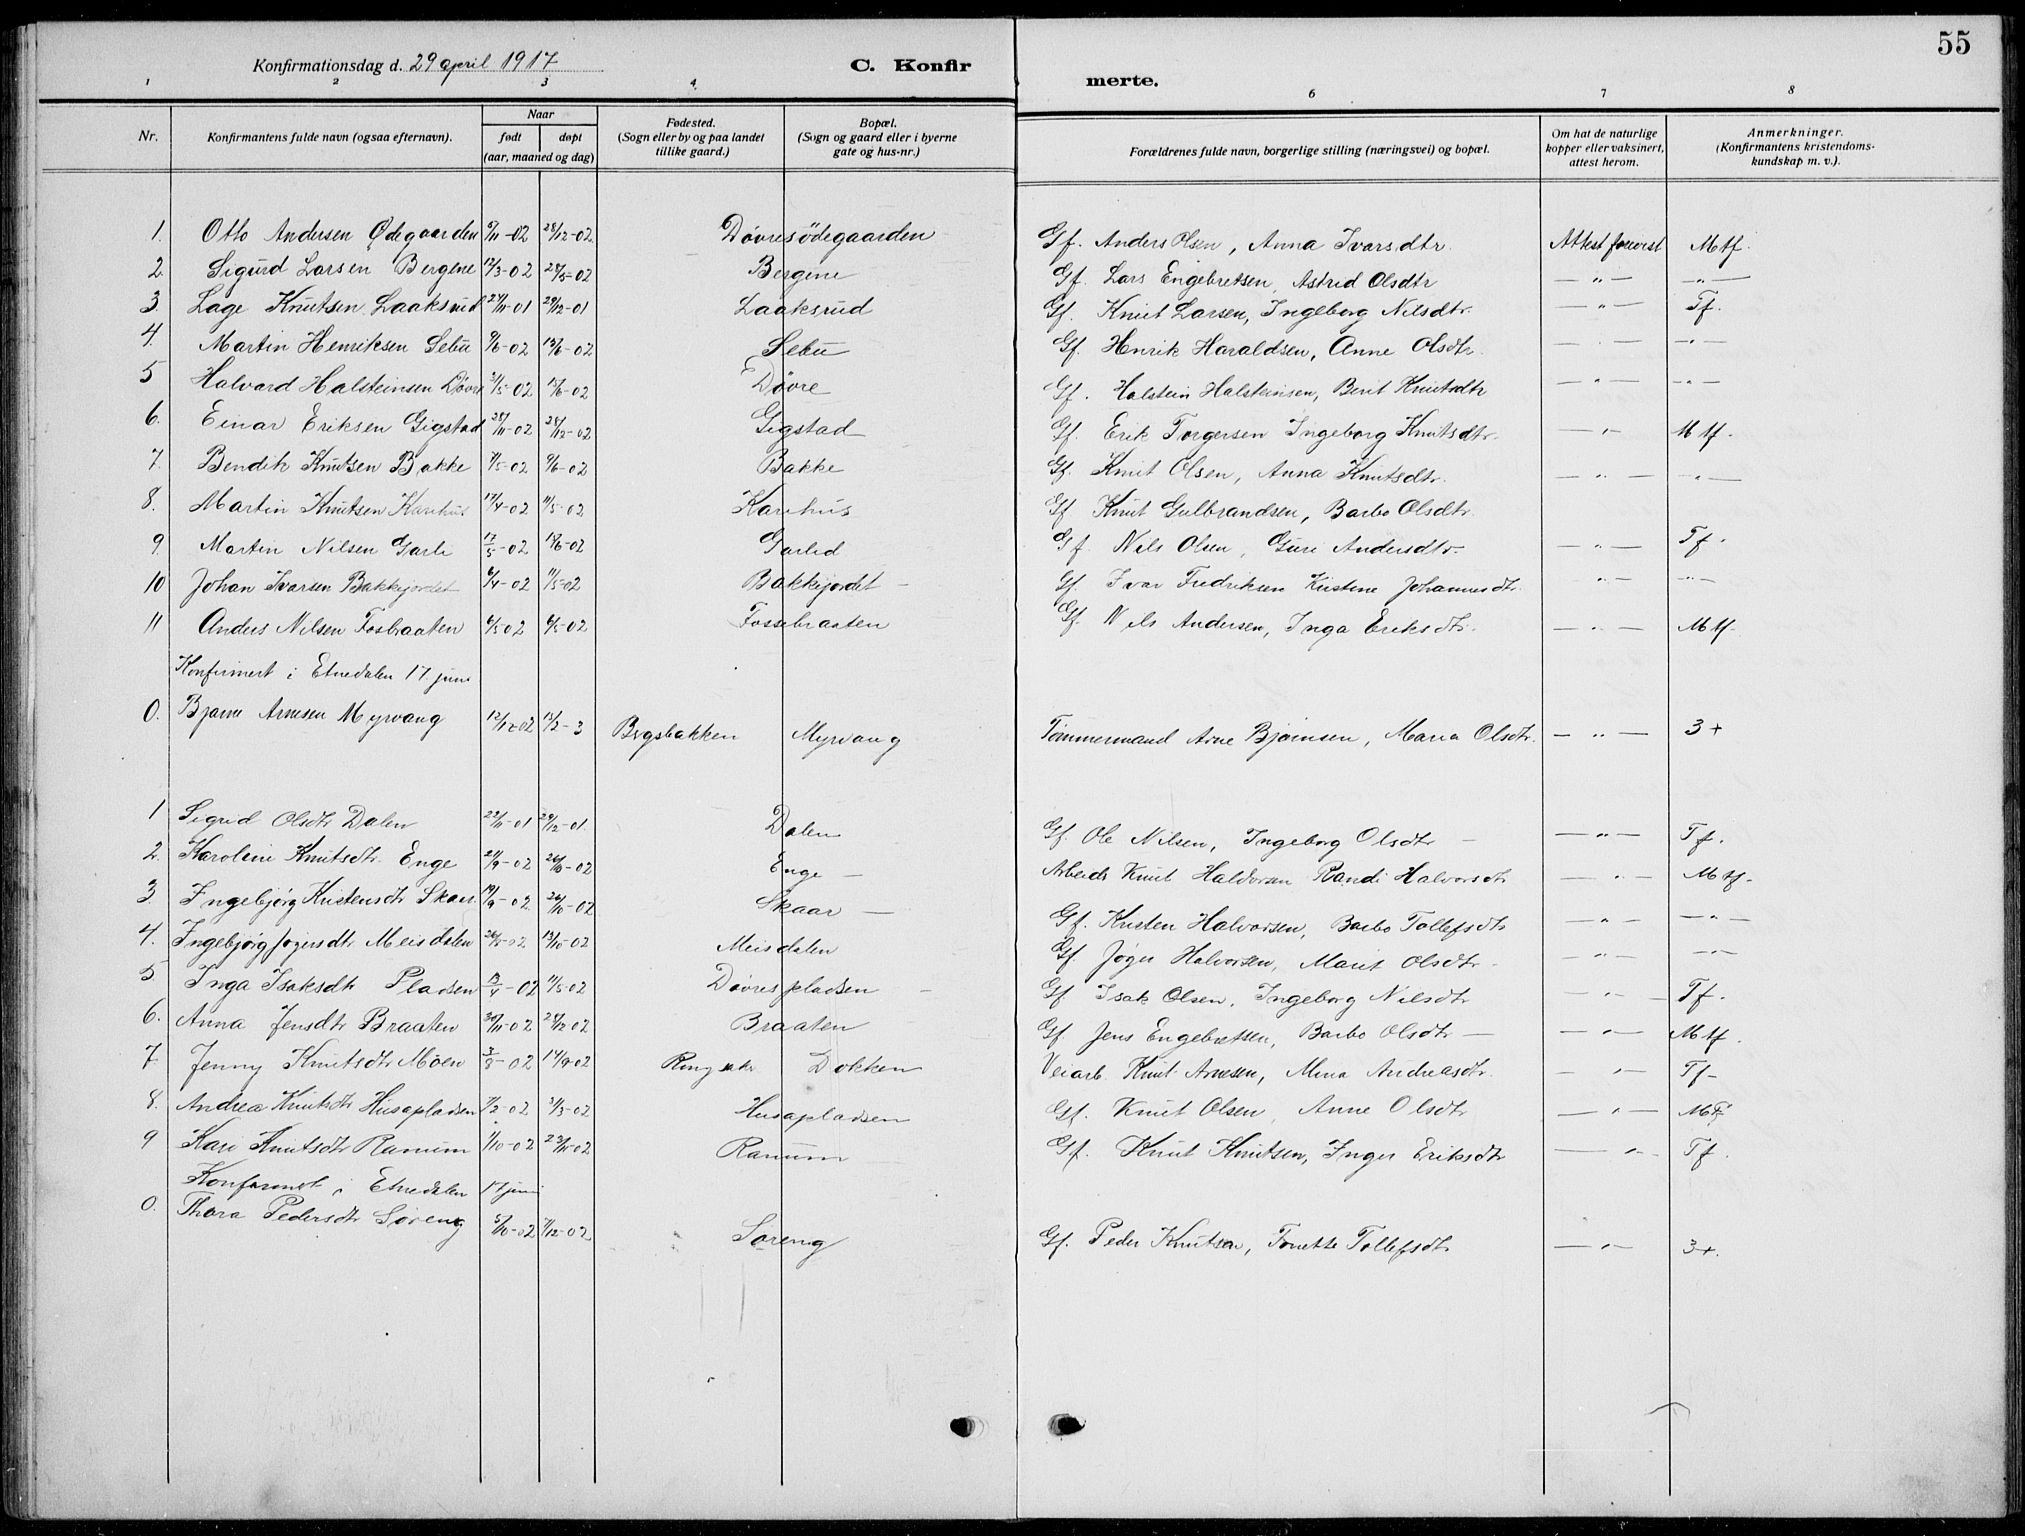 55
Konfirmationsdag d. 29 april 1917 C. Konfirmerte.
1 2 3 4 6 7 8
Nr. Konfirmantens fulde navn (ogsaa efternavn). Naar født døpt (aar, maaned og dag) Fødested. (Sogn eller by og paa landet tillike gaard.) Bopæl. (Sogn og gaard eller i byerne gate og hus-nr.) Forældrenes fulde navn, borgerlige stilling (næringsvei) og bopæl. Om hat de naturlige kopper eller vaksinert, attest herom. Anmerkninger. (Konfirmantens kristendomskundskap m. v.).
1. Otto Andersen Ødegaarden 5/11-02 28/12-02 Døvresødegaarden Gf. Anders Olsen, Anna Ivarsdtr. Attest forevist Mtf.
2. Sigurd Larsen Bergene 12/3-02 28/5-02 Bergene Gf. Lars Engebretsen, Astrid Olsdtr — " — — " —
3. Lage Knutsen Laaksrud 24/11-01 29/12-01 Laaksrud Gf. Knut Larsen, Ingeborg Nilsdtr. — " — Tf.
4. Martin Henriksen Sebu 9/6-02 Sebu Gf. Henrik Haraldsen, Anne Olsdtr. — " — — " —
5 Halvard Halsteinsen Døvre 15/6-02 Døvre Gf. Halstein Halsteinsen, Berit Knutsdtr — " — — " —
6. Einar Eriksen Gigstad 28/11-02 28/12-02 Gigstad Gf. Erik Torgersen Ingeborg Knutsdtr. — " — Mtf.
7. Bendik Knutsen Bakke 9/6-02 Bakke Gf. Knut Olsen, Anna Knutsdtr. — " — — " —
8. Martin Knutsen Karihus 17/4-02 11/5-02 Karihus Gf Knut Gulbrandsen, Barbo Olsdtr.
9. Martin Nilsen Garli 17/5-02 Garlid Gf. Nils Olsen, Guri Andersdtr. — " — Tf.
10 Johan Ivarsen Bakkejordet 6/4-02 11/5-02 Bakkejordet Gf. Ivar Fredriksen Kristine Johannesdtr. — " — — " —
11 Anders Nilsen Fosbraaten 6/5 02 6/5-02 Fossebraaten Gf. Nils Andersen, Inga Eriksdtr. — " — Mtf.
Konfirmert i Etnedalen 17 juni
0. Bjarne Arnesen Myrvang 12/11-02 15/2-3 Bygsbakken Myrvang Tømmermand Arne Bjørnsen, Maria Olsdtr. — " — 3+
1 Sigrid Olsdtr Dalen 22/11-01 29/12-01 Dalen Gf. Ole Nilsen, Ingeborg Olsdtr — — " — Tf.
2. Karoline Knutsdtr. Enge 21/9-02 26/10-02 Enge — Arbeider Knut Haldorsen Randi Halvorsdtr — " — Mtf.
3. Ingebjørg Kristensdtr Skaar 19/9-02 26/10-02 Skaar — Gf. Kristen Halvorsen, Barbo Tollefsdtr — " — — " —
4. Ingebjørg Jøgersdtr Meisdalen 13/10-02 Meisdalen Gf. Jøger Halvorsen, Marit Olsdtr. — " — — " —
5 Inga Isaksdtr Pladsen 13/4-02 11/5-02 Døvrespladsen — Gf Isak Olsen, Ingeborg Nilsdtr — " — Tf.
6. Anna Jensdtr Braaten 30/11-02 28/12 02 Braaten Gf. Jens Engebretsen, Barbo Olsdtr — — " — Mtf.
7. Jenny Knutsdtr Moen 3/8-02 14/9 02 Ringsaker Dokken Veiarb. Knut Arnesen, Mina Andreasdtr. — " — Tf.
8. Andrea Knutsdtr Husapladsen 7/2-02 31/3-02 Husapladsen Gf. Knut Olsen, Anne Olsdtr — " — Mtf
9 Kari Knutsdtr Ranum 1/10-02 Ranum — Gf. Knut Knutsen, Inger Eriksdtr — " — Tf.
Konfirmert i Etnedalen 17 juni
0. Thora Pedersdtr Søreng 5/10-02 7/12-02 Søreng Gf. Peder Knutsen, Tonette Tollefsdtr — " — 3+.